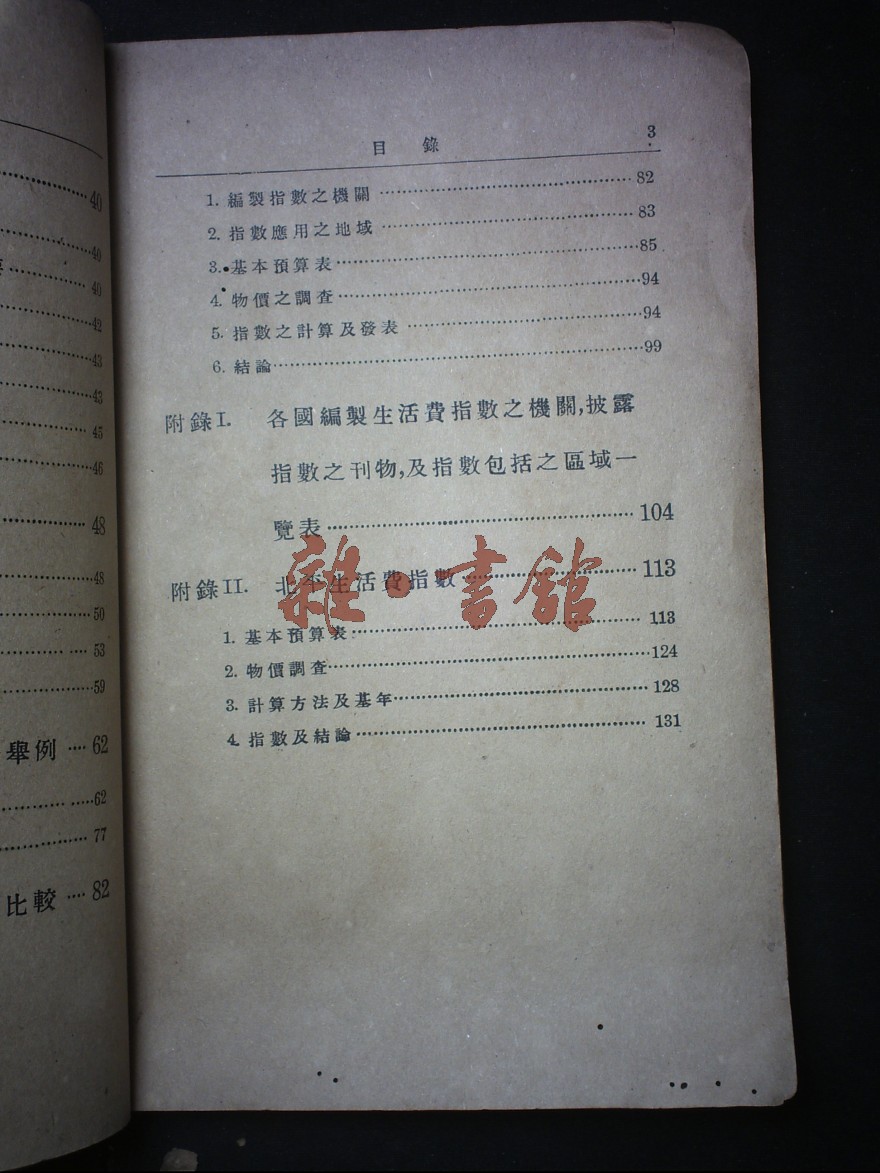 40
40
40
42
43
43
45
46
48
48
50
53
59
舉例 ···· 62
62
77
比較 ···· 82
目錄 3
1. 編製指數之機關 ························ 82
2. 指數應用之地域 ························ 83
3. 基本預算表 ························ 85
4. 物價之調查 ························ 94
5. 指數之計算及發表 ························ 94
6. 結論 ························ 99
附錄I. 各國編製生活費指數之機關,披露
指數之刊物,及指數包括之區域一
覽表 ························ 104
附錄II. 北平生活費指數 ························ 113
1. 基本預算表 ························ 113
2. 物價調查 ························ 124
3. 計算方法及基年 ························ 128
4. 指數及結論 ························ 131
雜·書館